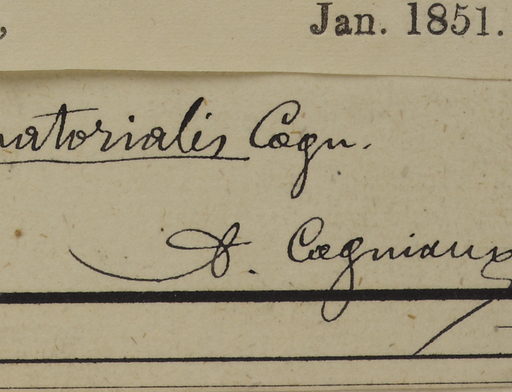 , Jan. 1851.
natorialis Cogn.
A. Cogniaux